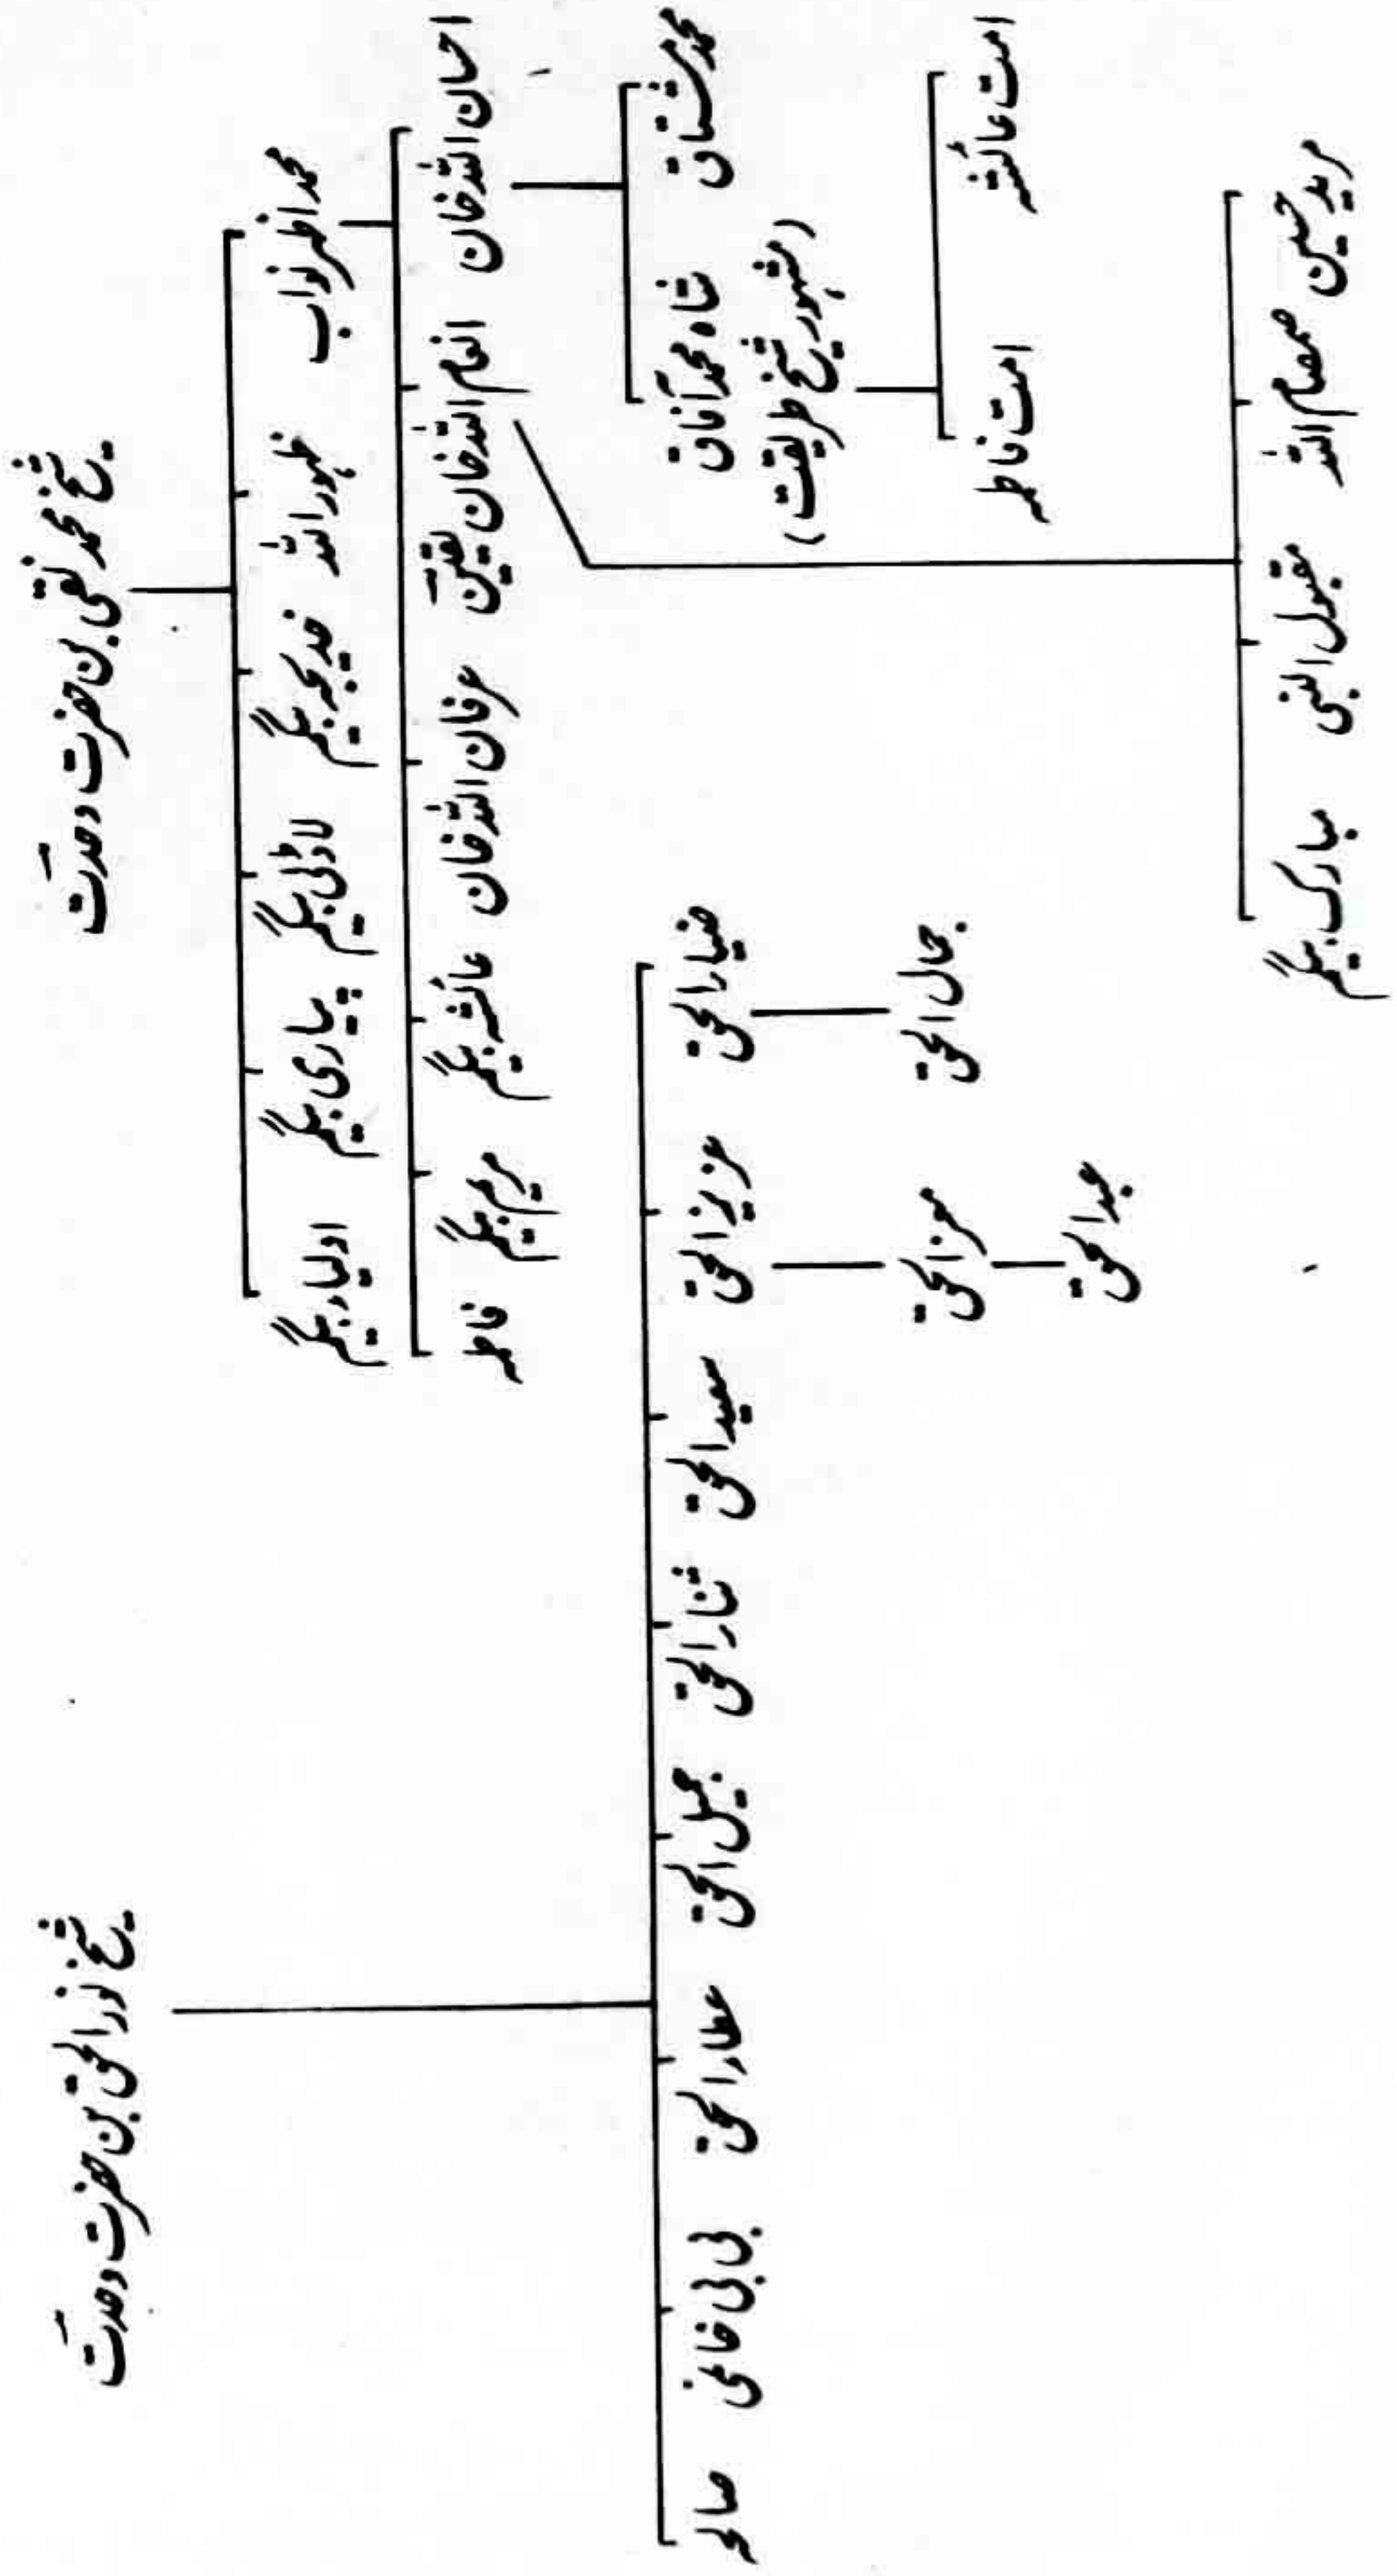 شیخ محمد نقی بن حضرت وحدتؔ
محمد اظہر نواب ظہور اللہ خدیجہ بیگم لاڈلی بیگم پیاری بیگم اولیاء بیگم
احسان اللہ خان انعام اللہ خان یقینؔ عرفان اللہ خان عائشہ بیگم مریم بیگم فاطمہ
محمد مشتاق شاہ محمد آفاق
(مشہور شیخ طریقت)
امت عائشہ امت فاطمہ
مرید حسین صمصام اللہ مقبول النبی مبارک بیگم
شیخ نور الحق بن حضرت وحدتؔ
ضیاء الحق عزیز الحق سعید الحق ثناء الحق جمیل الحق عطاء الحق بی بی خانمی صالحہ
جمال الحق معز الحق
عبد الحق